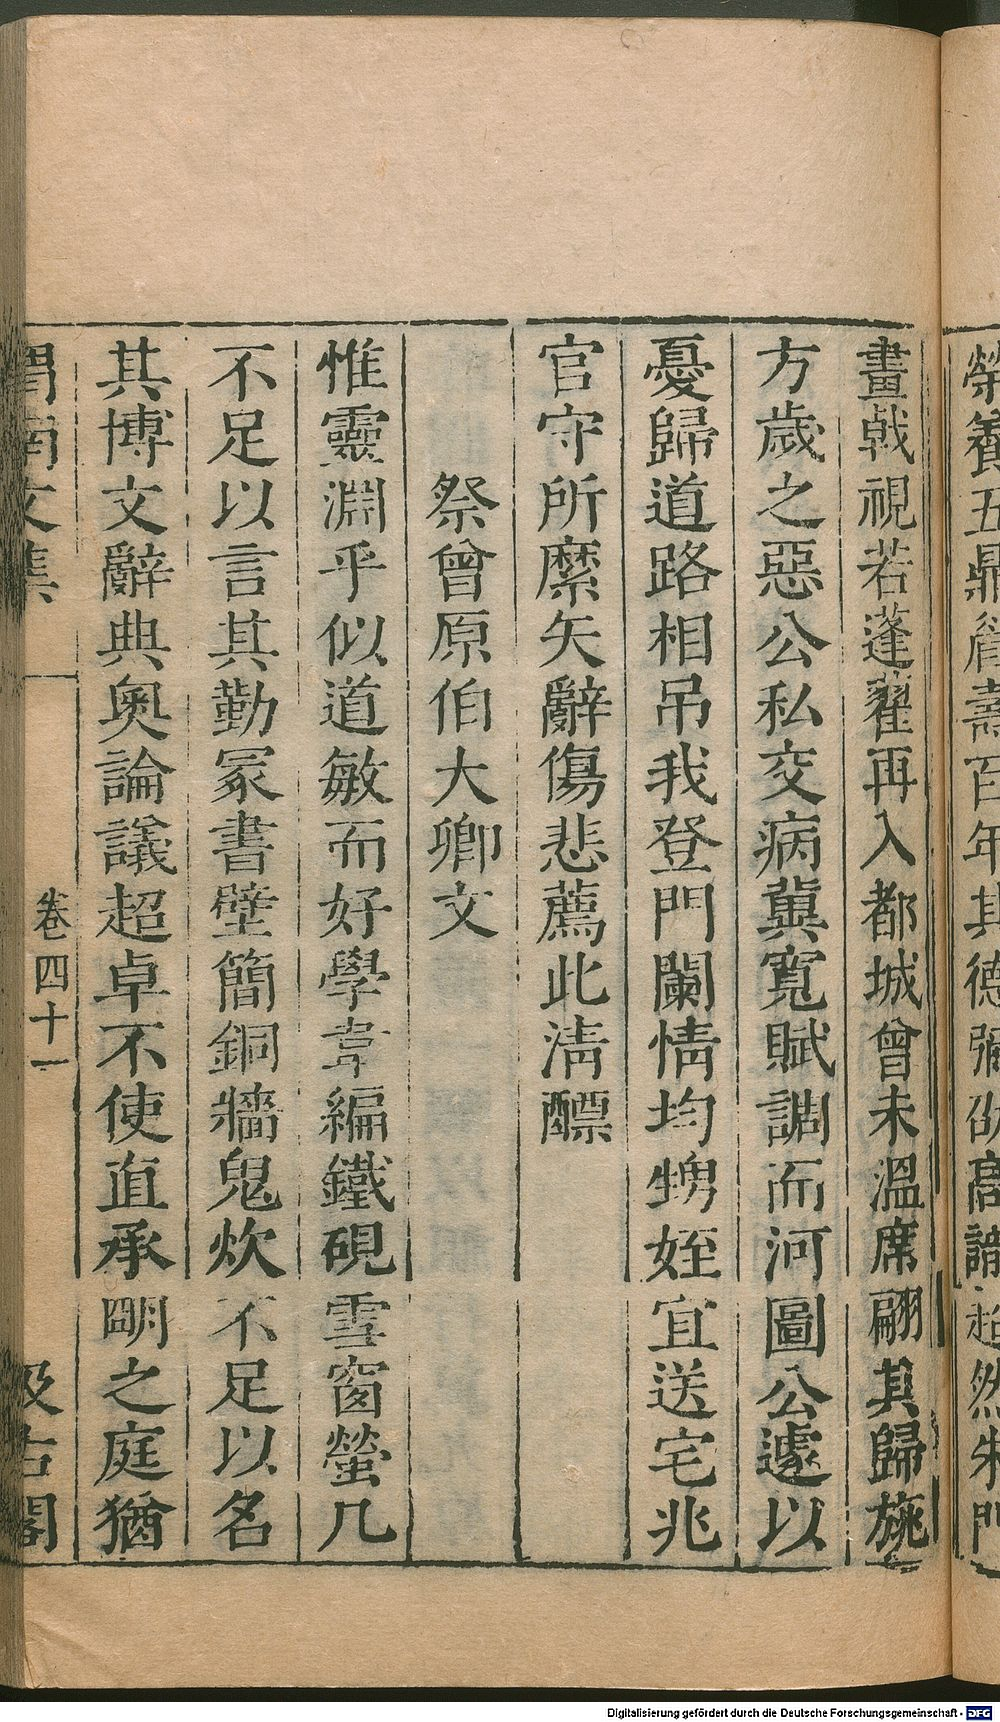 榮養五鼎眉壽百年其德彌劭高誼超然朱門
畫戟視若蓬藋再入都城曾未溫席翩其歸旐
方歲之惡公私交病冀寬賦調而河圖公遽以
憂歸道路相吊我登門闌情均甥姪宜送宅兆
官守所縻矢辭傷悲薦此淸醥
祭曾原伯大卿文
惟靈淵乎似道敏而好學韋編鐵硯雪窗螢几
不足以言其勤冢書壁簡銅牆鬼炊不足以名
其博文辭典奧論議超卓不使直承明之庭猶
渭南文集
卷四十一
汲古閣
Digitalisierung gefördert durch die Deutsche Forschungsgemeinschaft - DFG